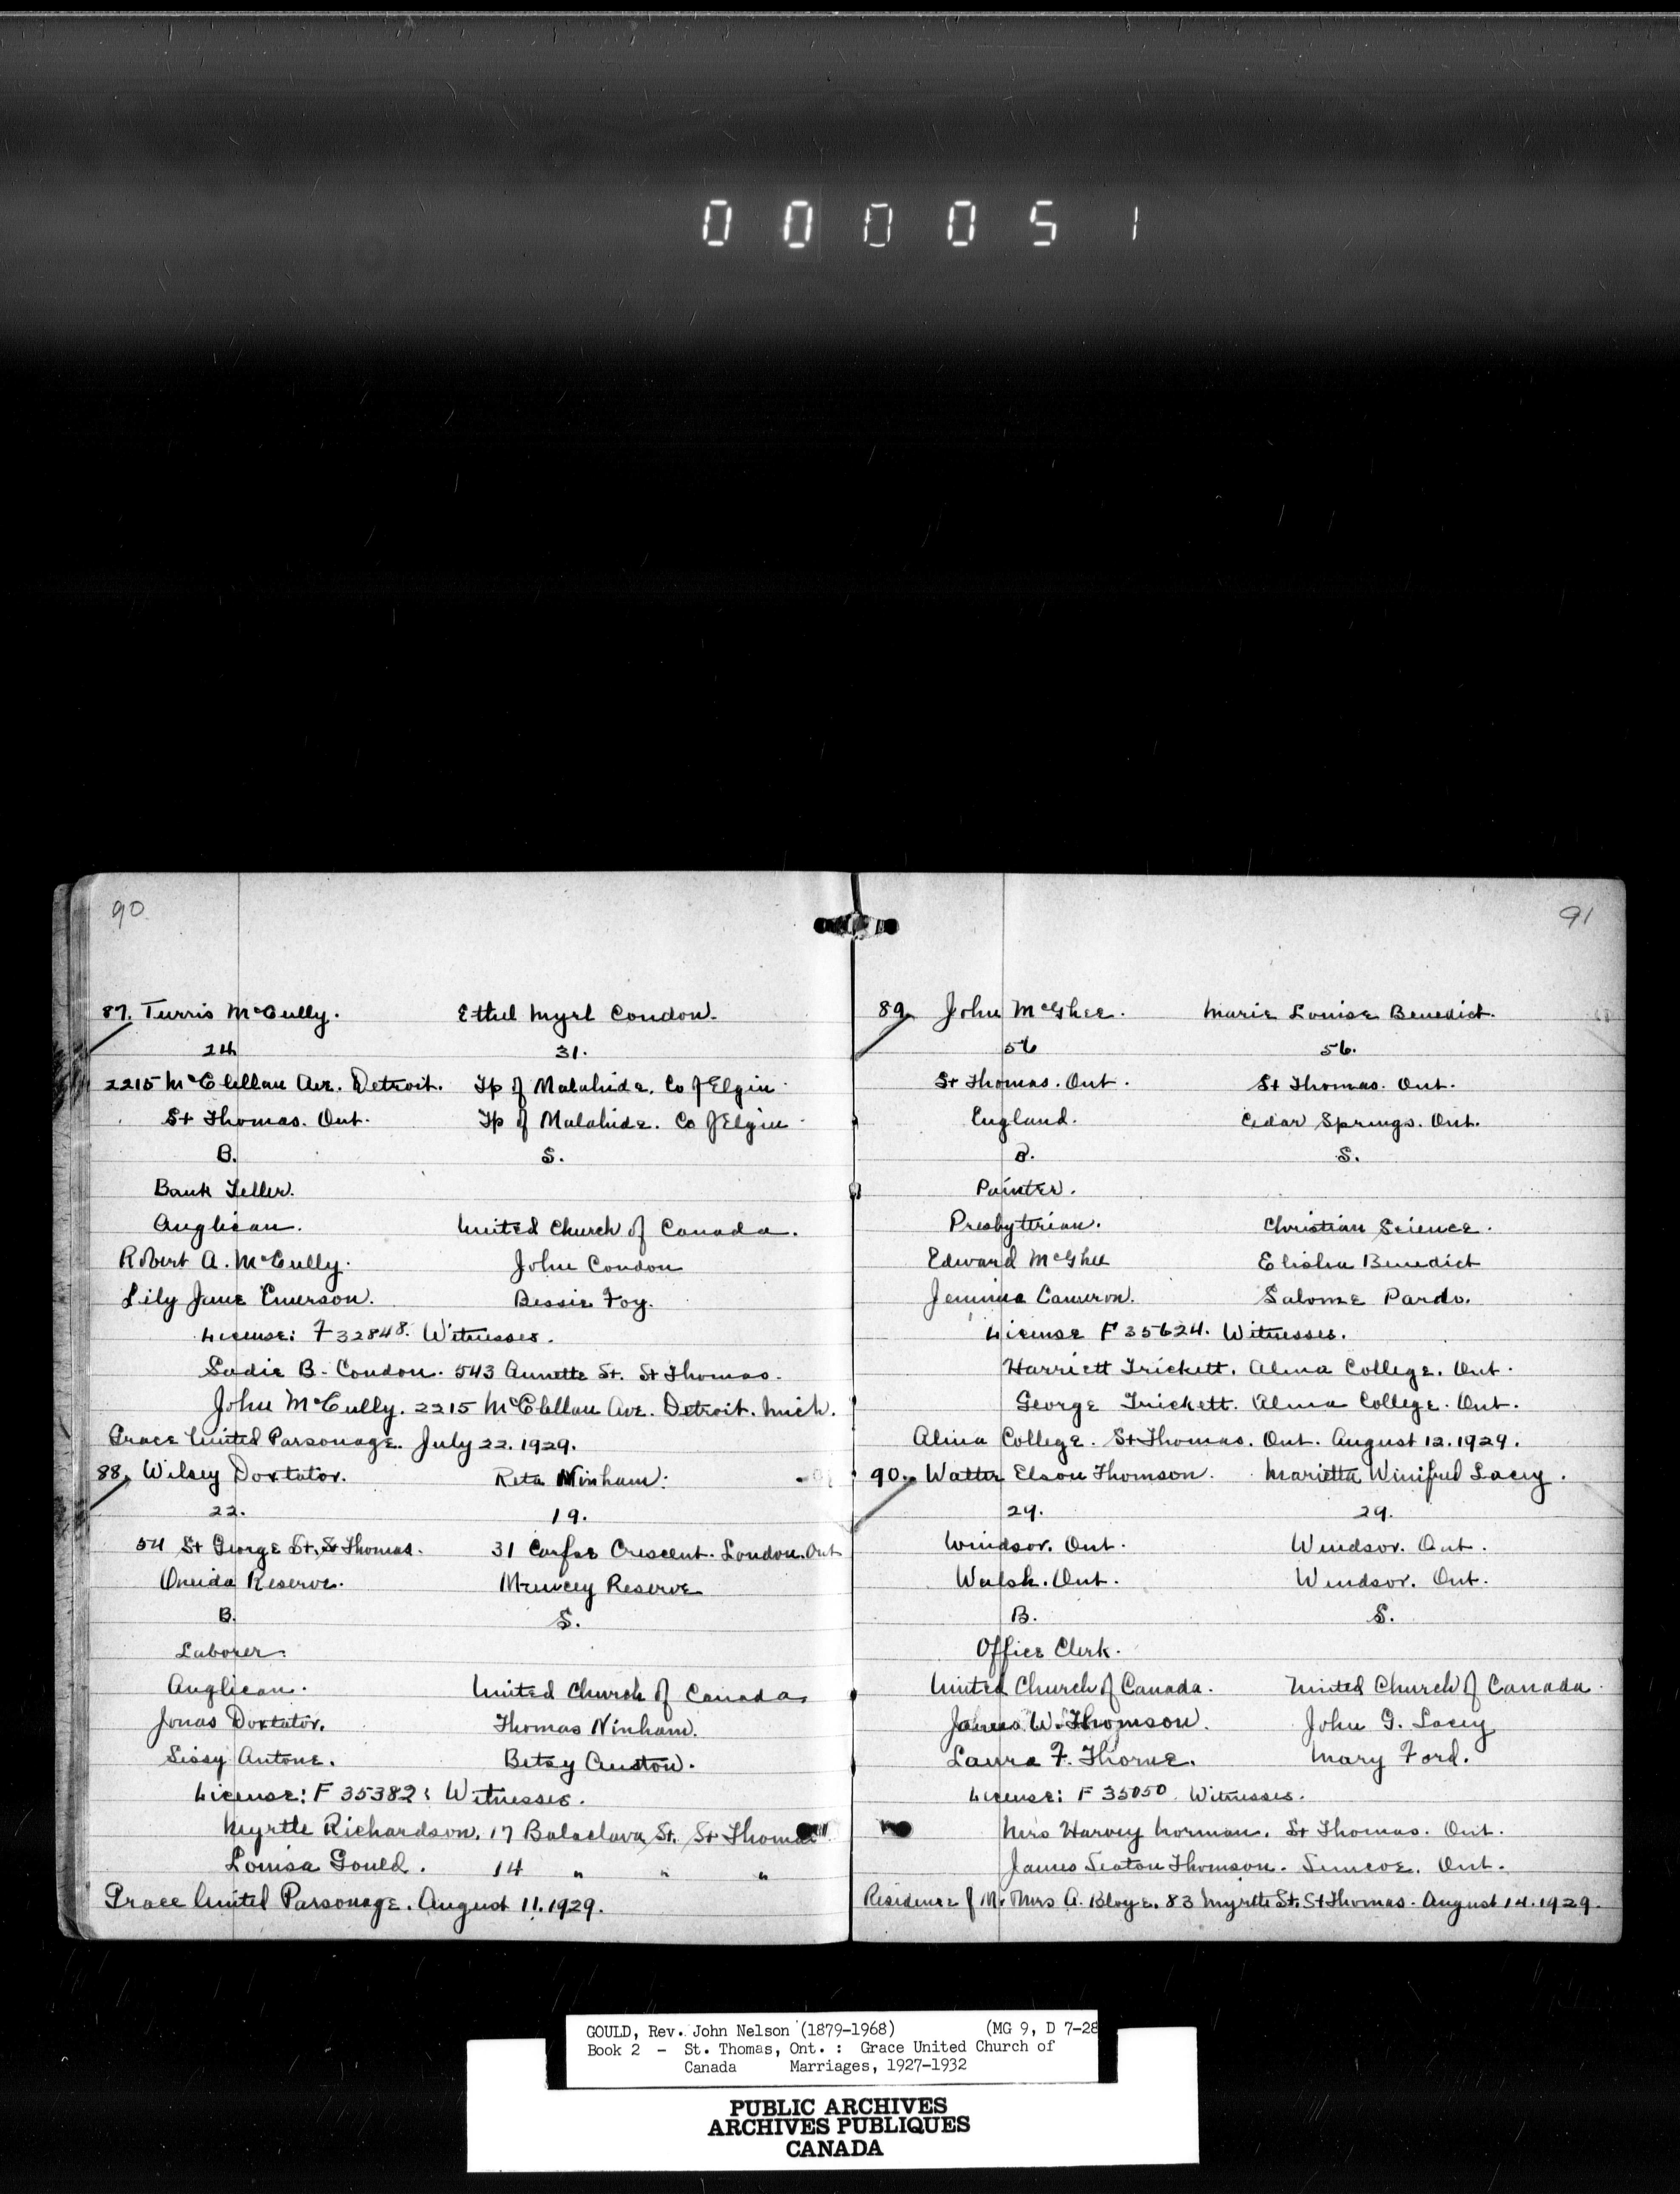 000051
90
87. Turris McCully. Ethel Myrl Condon.
24 31.
2215 McClellan Ave. Detroit. Tp of Malahide. Co of Elgin
St Thomas. Ont. Tp of Malahide. Co of Elgin
B. S.
Bank Teller.
Anglican. United Church of Canada.
Robert A. McCully. John Condon
Lily Jane Emerson. Bessie Foy.
License: F 32848. Witnesses.
Sadie B. Condon. 543 Annette St. St Thomas.
John McCully. 2215 McClellan Ave. Detroit. Mich.
Grace United Parsonage. July 22. 1929.
88. Wilsey Doxtator. Reta Ninham.
22. 19.
54 St George St. St Thomas. 31 Carfae Crescent. London. Ont
Oneida Reserve. Muncey Reserve
B. S.
Laborer.
Anglican. United Church of Canada.
Jonas Doxtator. Thomas Ninham.
Sissy Antone. Betsy Auston.
License: F 35382: Witnesses.
Myrtle Richardson. 17 Balaclava St. St Thomas
Louisa Gould. 14 " " "
Grace United Parsonage. August 11. 1929.
91
89. John McGhee. Marie Louise Benedict.
56 56.
St Thomas. Ont. St Thomas. Ont.
England. Cedar Springs. Ont.
B. S.
Painter.
Presbyterian. Christian Science.
Edward McGhee Elisha Benedict
Jemima Cameron. Salome Pardo.
License F 35624. Witnesses.
Harriett Trickett. Alma College. Ont.
George Trickett. Alma College. Ont.
Alma College. St Thomas. Ont. August 12. 1929.
90. Walter Elson Thomson. Marietta Winifred Lacey.
29. 29.
Windsor. Ont. Windsor. Ont.
Walsh. Ont. Windsor. Ont.
B. S.
Office Clerk.
United Church of Canada. United Church of Canada.
James W. Thomson. John G. Lacey
Laura F. Thorne. Mary Ford.
License: F 35050. Witnesses.
Mrs Harvey Norman. St Thomas. Ont.
James Seaton Thomson. Simcoe. Ont.
Residence of Mr. Mrs A. Bloye. 83 Myrtle St. St Thomas. August 14. 1929.
GOULD, Rev. John Nelson (1879-1968) (MG 9, D 7-28
Book 2 - St. Thomas, Ont. : Grace United Church of
Canada Marriages, 1927-1932
PUBLIC ARCHIVES
ARCHIVES PUBLIQUES
CANADA